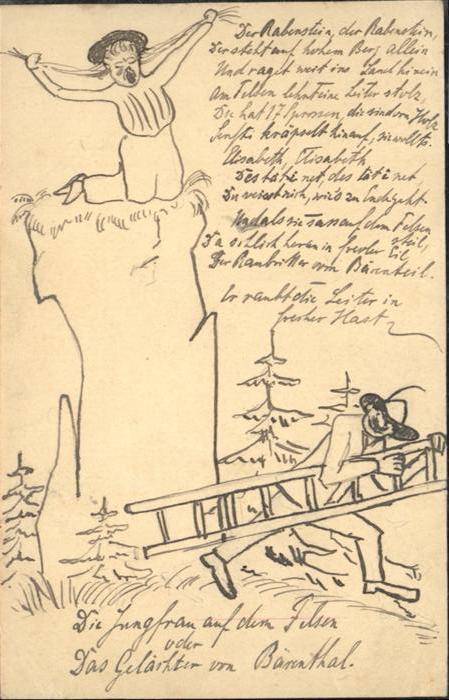 Der Rabenstein, der Rabenstein,
Der steht auf hohem Berg allein
Und raget weit ins Land hinein
Am Felsen lehnt eine Leiter stolz
Die hat 17 Sprossen, die sind von Holz
kräpselt hinauf,
Elisabeth, Elisabeth
Des täte net, des täte net
Du weisst nich, wie's zu Endgeht.
Und als sie sass auf dem Felsen
steil,
Da schlich heran in frevler Eil
Der Raubritter vom Bärenteil.
Er raubt die Leiter in
frecher Hast
Die Jungfrau auf dem Felsen
oder
Das Gelächter von Bärenthal.